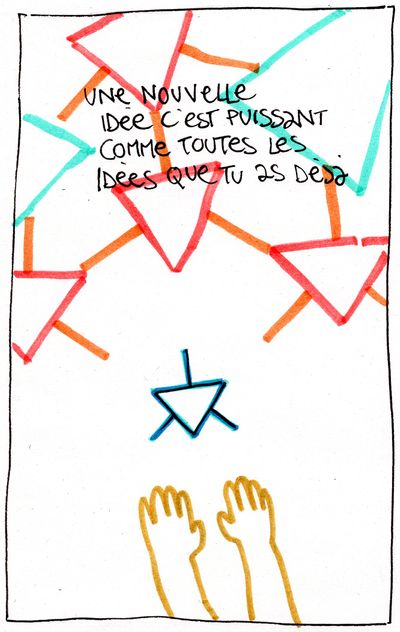 UNE NOUVELLE
IDÉE C'EST PUISSANT
COMME TOUTES LES
IDÉES QUE TU AS DÉJÀ